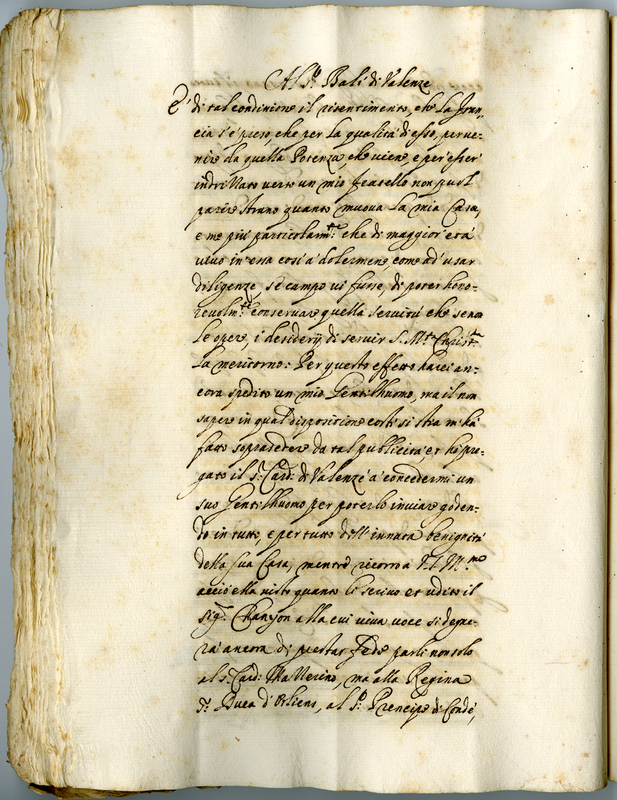 Al S.r Balì di Valenze
È di tal condinione il risentimento, che la Fran-
cia s'è preso che per la qualità d'esso, perve-
nire da quella Potenza, che viene, e per esser
indrillato verso un mio fratello non può
parer strano quanto muova la mia Casa,
e me più particolarm.te che di maggior età
vivo in essa così à dolermene, come ad' usar
diligenze, se campo vi fusse, di poter hono-
revolm.te conservare quella servitù che senza
le opere, i desiderij di servir S. M.tà Christ.ma
la mericorno: Per questo effetto havei an-
cora spedito un mio Gentilhuomo, ma il non
sapere in qual disposicione costì si stia m'hà
fatto soprasedere da tal publicità et hò pre-
gato il S.r Card. di Valenzè à concedermi un
suo Gentilhuomo per poterlo inviare goden-
do in tutto, e per tutto dell' innata benignità
della sua Casa, mentre ricorro à V.S. Ill.ma
acciò ella visto quanto le scrivo et udito il
Sig.r Chanyon alla cui viva voce si degne-
rà ancora di prestar fede parli non solo
al S. Card. Mazzerino, ma alla Regina
S.r Duca d'Orliens, al S.r Prencipe di Condé,